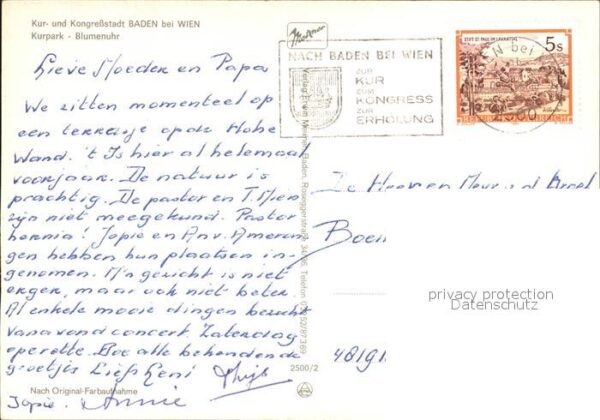 Kur- und Kongreßstadt BADEN bei WIEN
Kurpark - Blumenuhr
Lieve Moeder en Papa
We zitten momenteel op
een terrasje op de Hohe
Wand. 't Is hier al helemaal
voorjaar. De natuur is
prachtig. De pastor en T. Mien
zijn niet meegekund. Pastor
hernia! Jopie en Anv. Ameron
gen hebben hun plaatsen in-
genomen. M'n gezicht is niet
erger, maar ook niet beter.
Al enkele mooie dingen bezocht
Vanavond concert Zaterdag
operette. Boe alle behandende
groetjes Liefs Leni Thijs
Jopie. Annie
Nach Original-Farbaufnahme
NACH BADEN BEI WIEN
ZUR
KUR
ZUM
KONGRESS
ZUR
ERHOLUNG
STIFT ST. PAUL IM LAVANTTAL
5s
REPUBLIK ÖSTERREICH
2500
De Heer en Mevr
Boek
4819
2500/2
privacy protection
Datenschutz